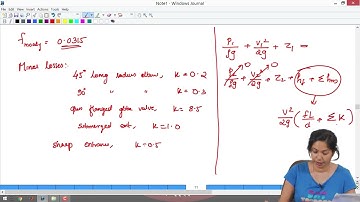 Note1 - Windows Journal
f moody = 0.0305
Minor losses:
45° long radius elbow, K = 0.2
90° " " K = 0.3
open flanged globe valve, K = 8.5
submerged exit, K = 1.0
sharp entrance, K = 0.5
P₁/ρg + V₁²/2g + Z₁ =
P₂/ρg 0 + V₂²/2g 0 + Z₂ + (h_f + Σ h_m)
V²/2g (fL/d + ΣK)